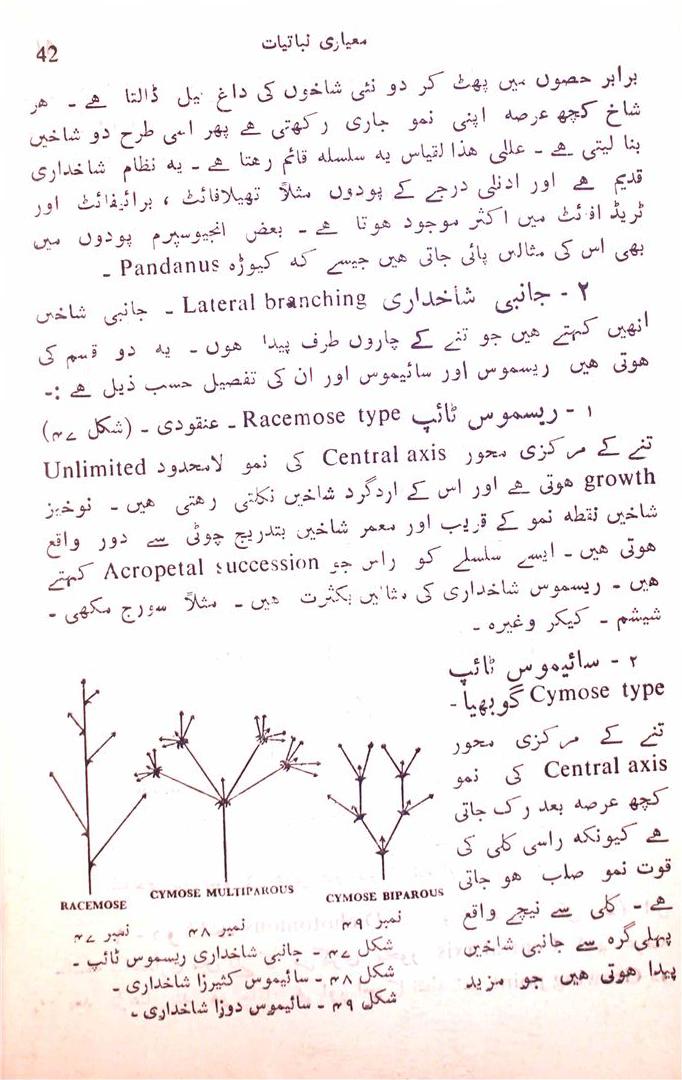 42
معیاری نباتیات
برابر حصوں میں پھٹ کر دو نئی شاخوں کی داغ بیل ڈالتا ہے ۔ ہر
شاخ کچھ عرصہ اپنی نمو جاری رکھتی ہے پھر اسی طرح دو شاخیں
بنا لیتی ہے ۔ عللی ھذا لقیاس یہ سلسلہ قائم رہتا ہے ۔ یہ نظام شاخداری
قدیم ہے اور ادنلی درجے کے پودوں مثلاً تھیلافائٹ ، برائیفائٹ اور
ٹریڈ افئٹ میں اکثر موجود ہوتا ہے ۔ بعض انجیوسپرم پودوں میں
بھی اس کی مثالیں پائی جاتی ہیں جیسے کہ کیوڑہ Pandanus ۔
۲ ۔ جانبی شاخداری Lateral branching ۔ جانبی شاخیں
انھیں کہتے ہیں جو تنے کے چاروں طرف پیدا ہوں ۔ یہ دو قسم کی
ہوتی ہیں ریسموس اور سائیموس اور ان کی تفصیل حسب ذیل ہے :۔
۱ ۔ ریسموس ٹائپ Racemose type ۔ عنقودی ۔ (شکل ۴۷)
تنے کے مرکزی محور Central axis کی نمو لامحدود Unlimited
growth ہوتی ہے اور اس کے اردگرد شاخیں نکلتی رہتی ہیں ۔ نوخیز
شاخیں نقطہ نمو کے قریب اور معمر شاخیں بتدریج چوٹی سے دور واقع
ہوتی ہیں ۔ ایسے سلسلے کو راس جو Acropetal succession کہتے
ہیں ۔ ریسموس شاخداری کی مثالیں بکثرت ہیں ۔ مثلاً سورج مکھی ۔
شیشم ۔ کیکر وغیرہ ۔
۲ ۔ سائیموس ٹائپ
Cymose type گوبھیا ۔
تنے کے مرکزی محور
Central axis کی نمو
کچھ عرصہ بعد رک جاتی
ہے کیونکہ راسی کلی کی
قوت نمو صلب ہو جاتی
ہے ۔ کلی سے نیچے واقع
پہلی گرہ سے جانبی شاخیں
پیدا ہوتی ہیں جو مزید
RACEMOSE
CYMOSE MULTIPAROUS
CYMOSE BIPAROUS
نمبر ۴۷ نمبر ۴۸ نمبر ۴۹
شکل ۴۷ ۔ جانبی شاخداری ریسموس ٹائپ ۔
شکل ۴۸ ۔ سائیموس کثیرزا شاخداری ۔
شکل ۴۹ ۔ سائیموس دوزا شاخداری ۔